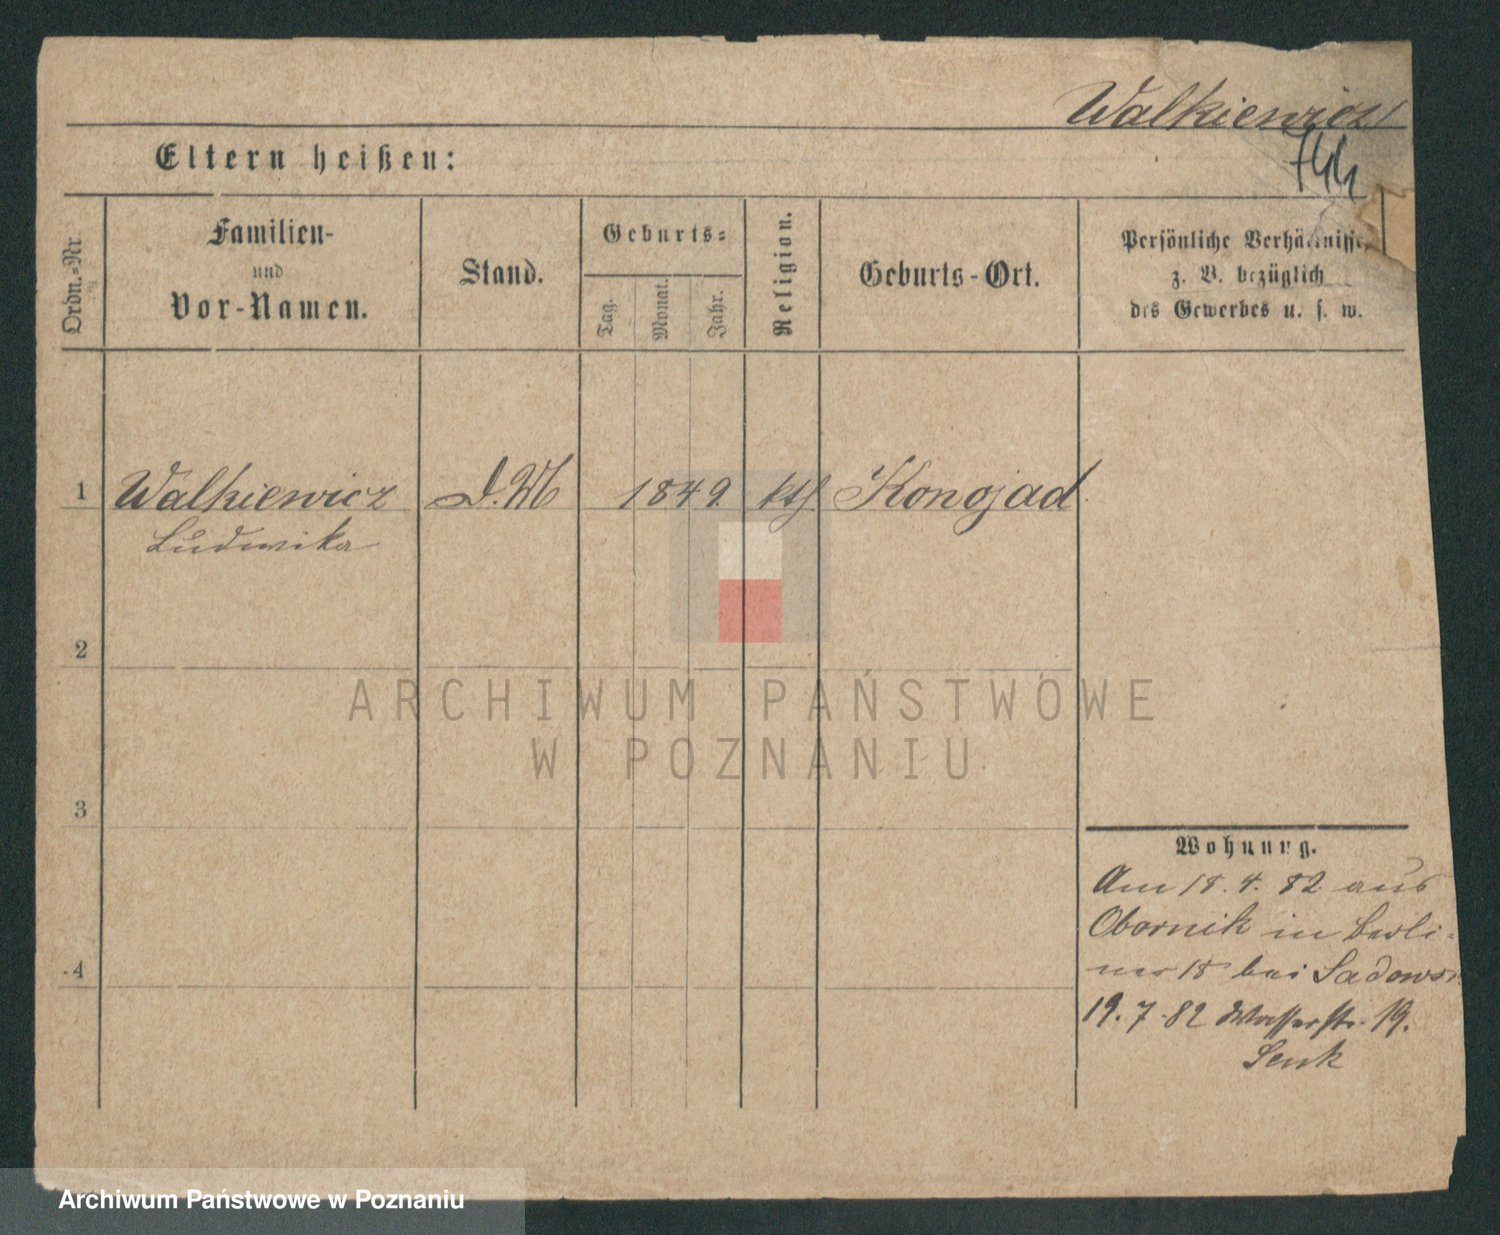 Walkiewicz
Eltern heißen:
Ordn.-Nr.
Familien-
und
Vor-Namen.
Stand.
Geburts-
Tag.
Monat.
Jahr.
Religion.
Geburts-Ort.
Persönliche Verhältnisse
z. B. bezüglich
des Gewerbes u. s. w.
1 Walkiewicz D. M 1849. kth Konojad
Ludwika
2
ARCHIWUM PAŃSTWOWE
W POZNANIU
3
Wohnung.
Am 18. 4. 82 aus
Obornik in Berli-
ner 18 bei Sadows
4
19. 7. 82 Wasserstr. 19.
Senk
Archiwum Państwowe w Poznaniu